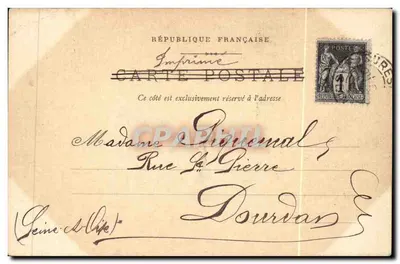 RÉPUBLIQUE FRANÇAISE
Imprimé
CARTE POSTALE
Ce côté est exclusivement réservé à l'adresse
POSTE
1
Madame Piquemal
Rue St Pierre
Dourdan
(Seine et Oise)